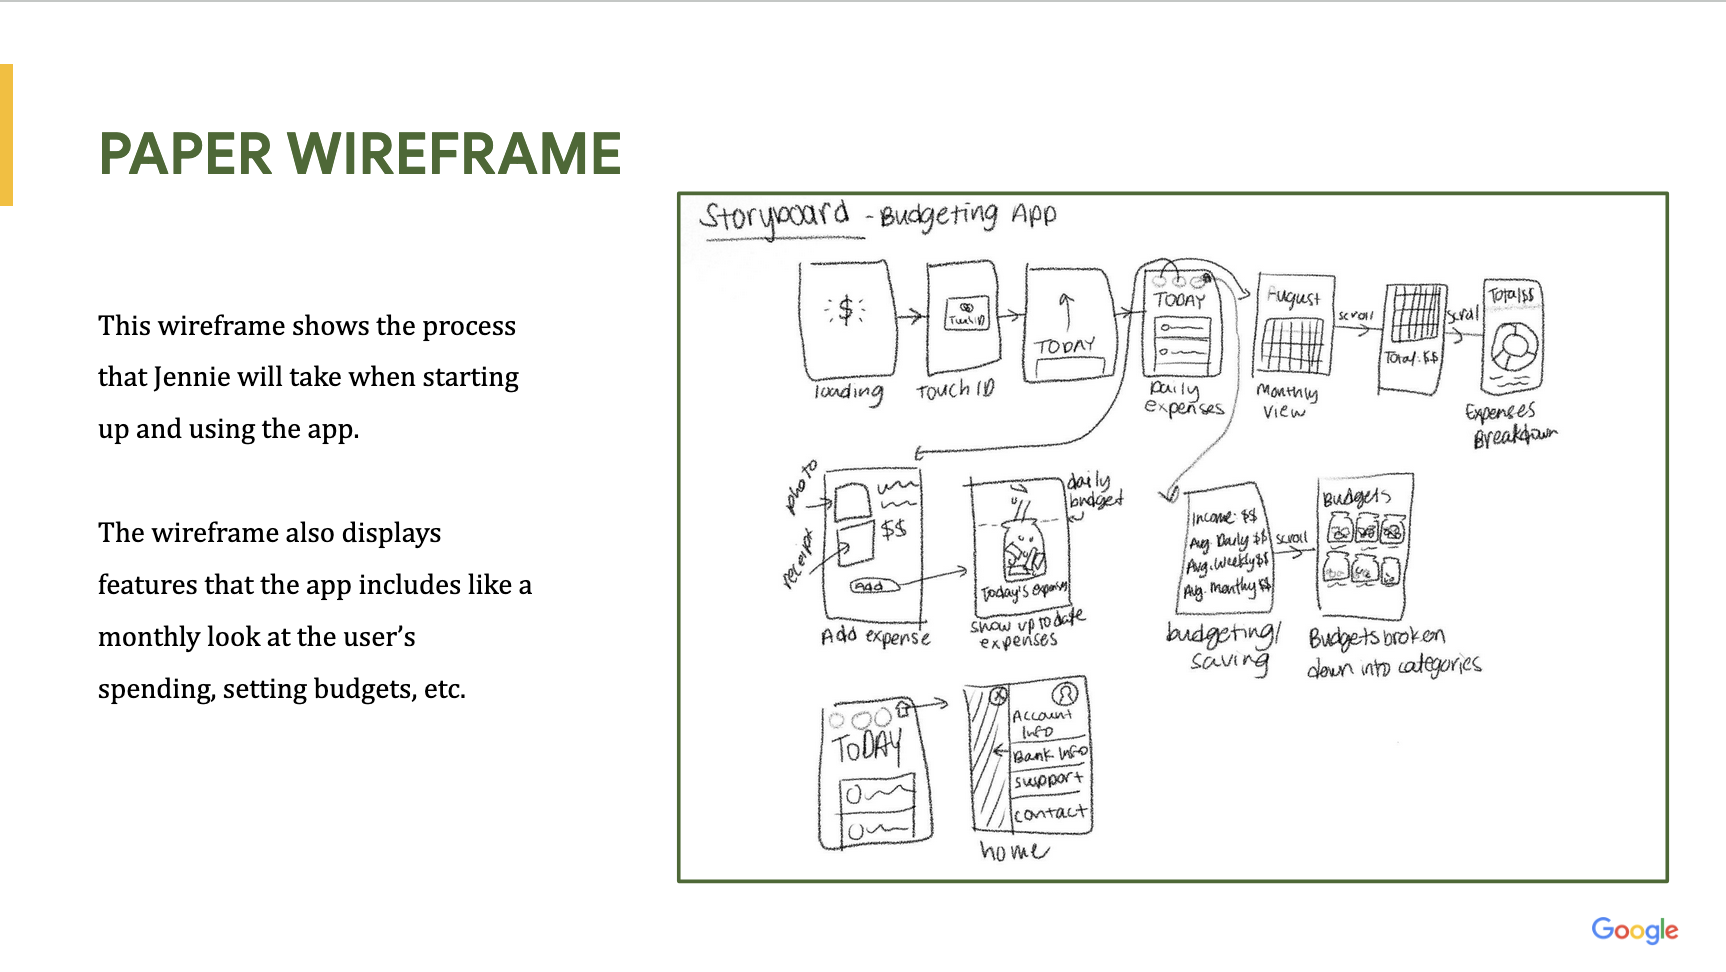 PAPER WIREFRAME
This wireframe shows the process
that Jennie will take when starting
up and using the app.
The wireframe also displays
features that the app includes like a
monthly look at the user's
spending, setting budgets, etc.
Storyboard - Budgeting App
$
loading
Touch ID
Touch ID
TODAY
TODAY
Daily
expenses
August
Monthly
view
scroll
Total: $$
scroll
Total $$
Expenses
Breakdown
photo
receipt
$$
Add
Add expense
daily
budget
Today's expenses
show up to date
expenses
Income: $$
Avg. Daily $$
Avg. Weekly $$
Avg. monthly $$
budgeting/
saving
scroll
Budgets
Budgets broken
down into categories
TODAY
X
Account
Info
Bank Info
support
contact
home
Google